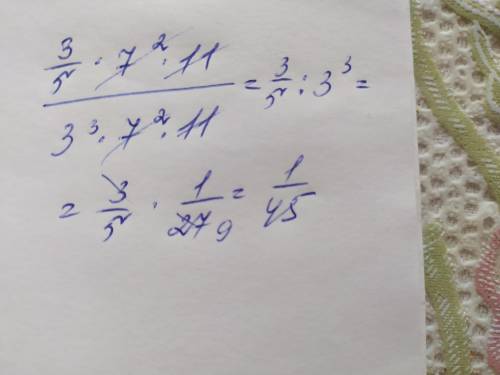 3/5 · 7² · 11 / 3³ · 7² · 11 = 3/5 : 3³ =
= 3/5 · 1/27 9 = 1/45